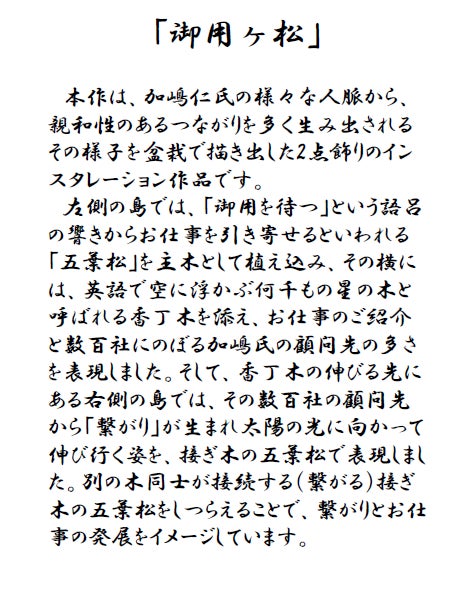 「御用ヶ松」
本作は、加嶋仁氏の様々な人脈から、
親和性のあるつながりを多く生み出される
その様子を盆栽で描き出した2点飾りのイン
スタレーション作品です。
左側の島では、「御用を待つ」という語呂
の響きからお仕事を引き寄せるといわれる
「五葉松」を主木として植え込み、その横に
は、英語で空に浮かぶ何千もの星の木と
呼ばれる香丁木を添え、お仕事のご紹介
と数百社にのぼる加嶋氏の顧問先の多さ
を表現しました。そして、香丁木の伸びる先に
ある右側の島では、その数百社の顧問先
から「繋がり」が生まれ太陽の光に向かって
伸び行く姿を、接ぎ木の五葉松で表現しまし
た。別の木同士が接続する(繋がる)接ぎ
木の五葉松をしつらえることで、繋がりとお仕
事の発展をイメージしています。